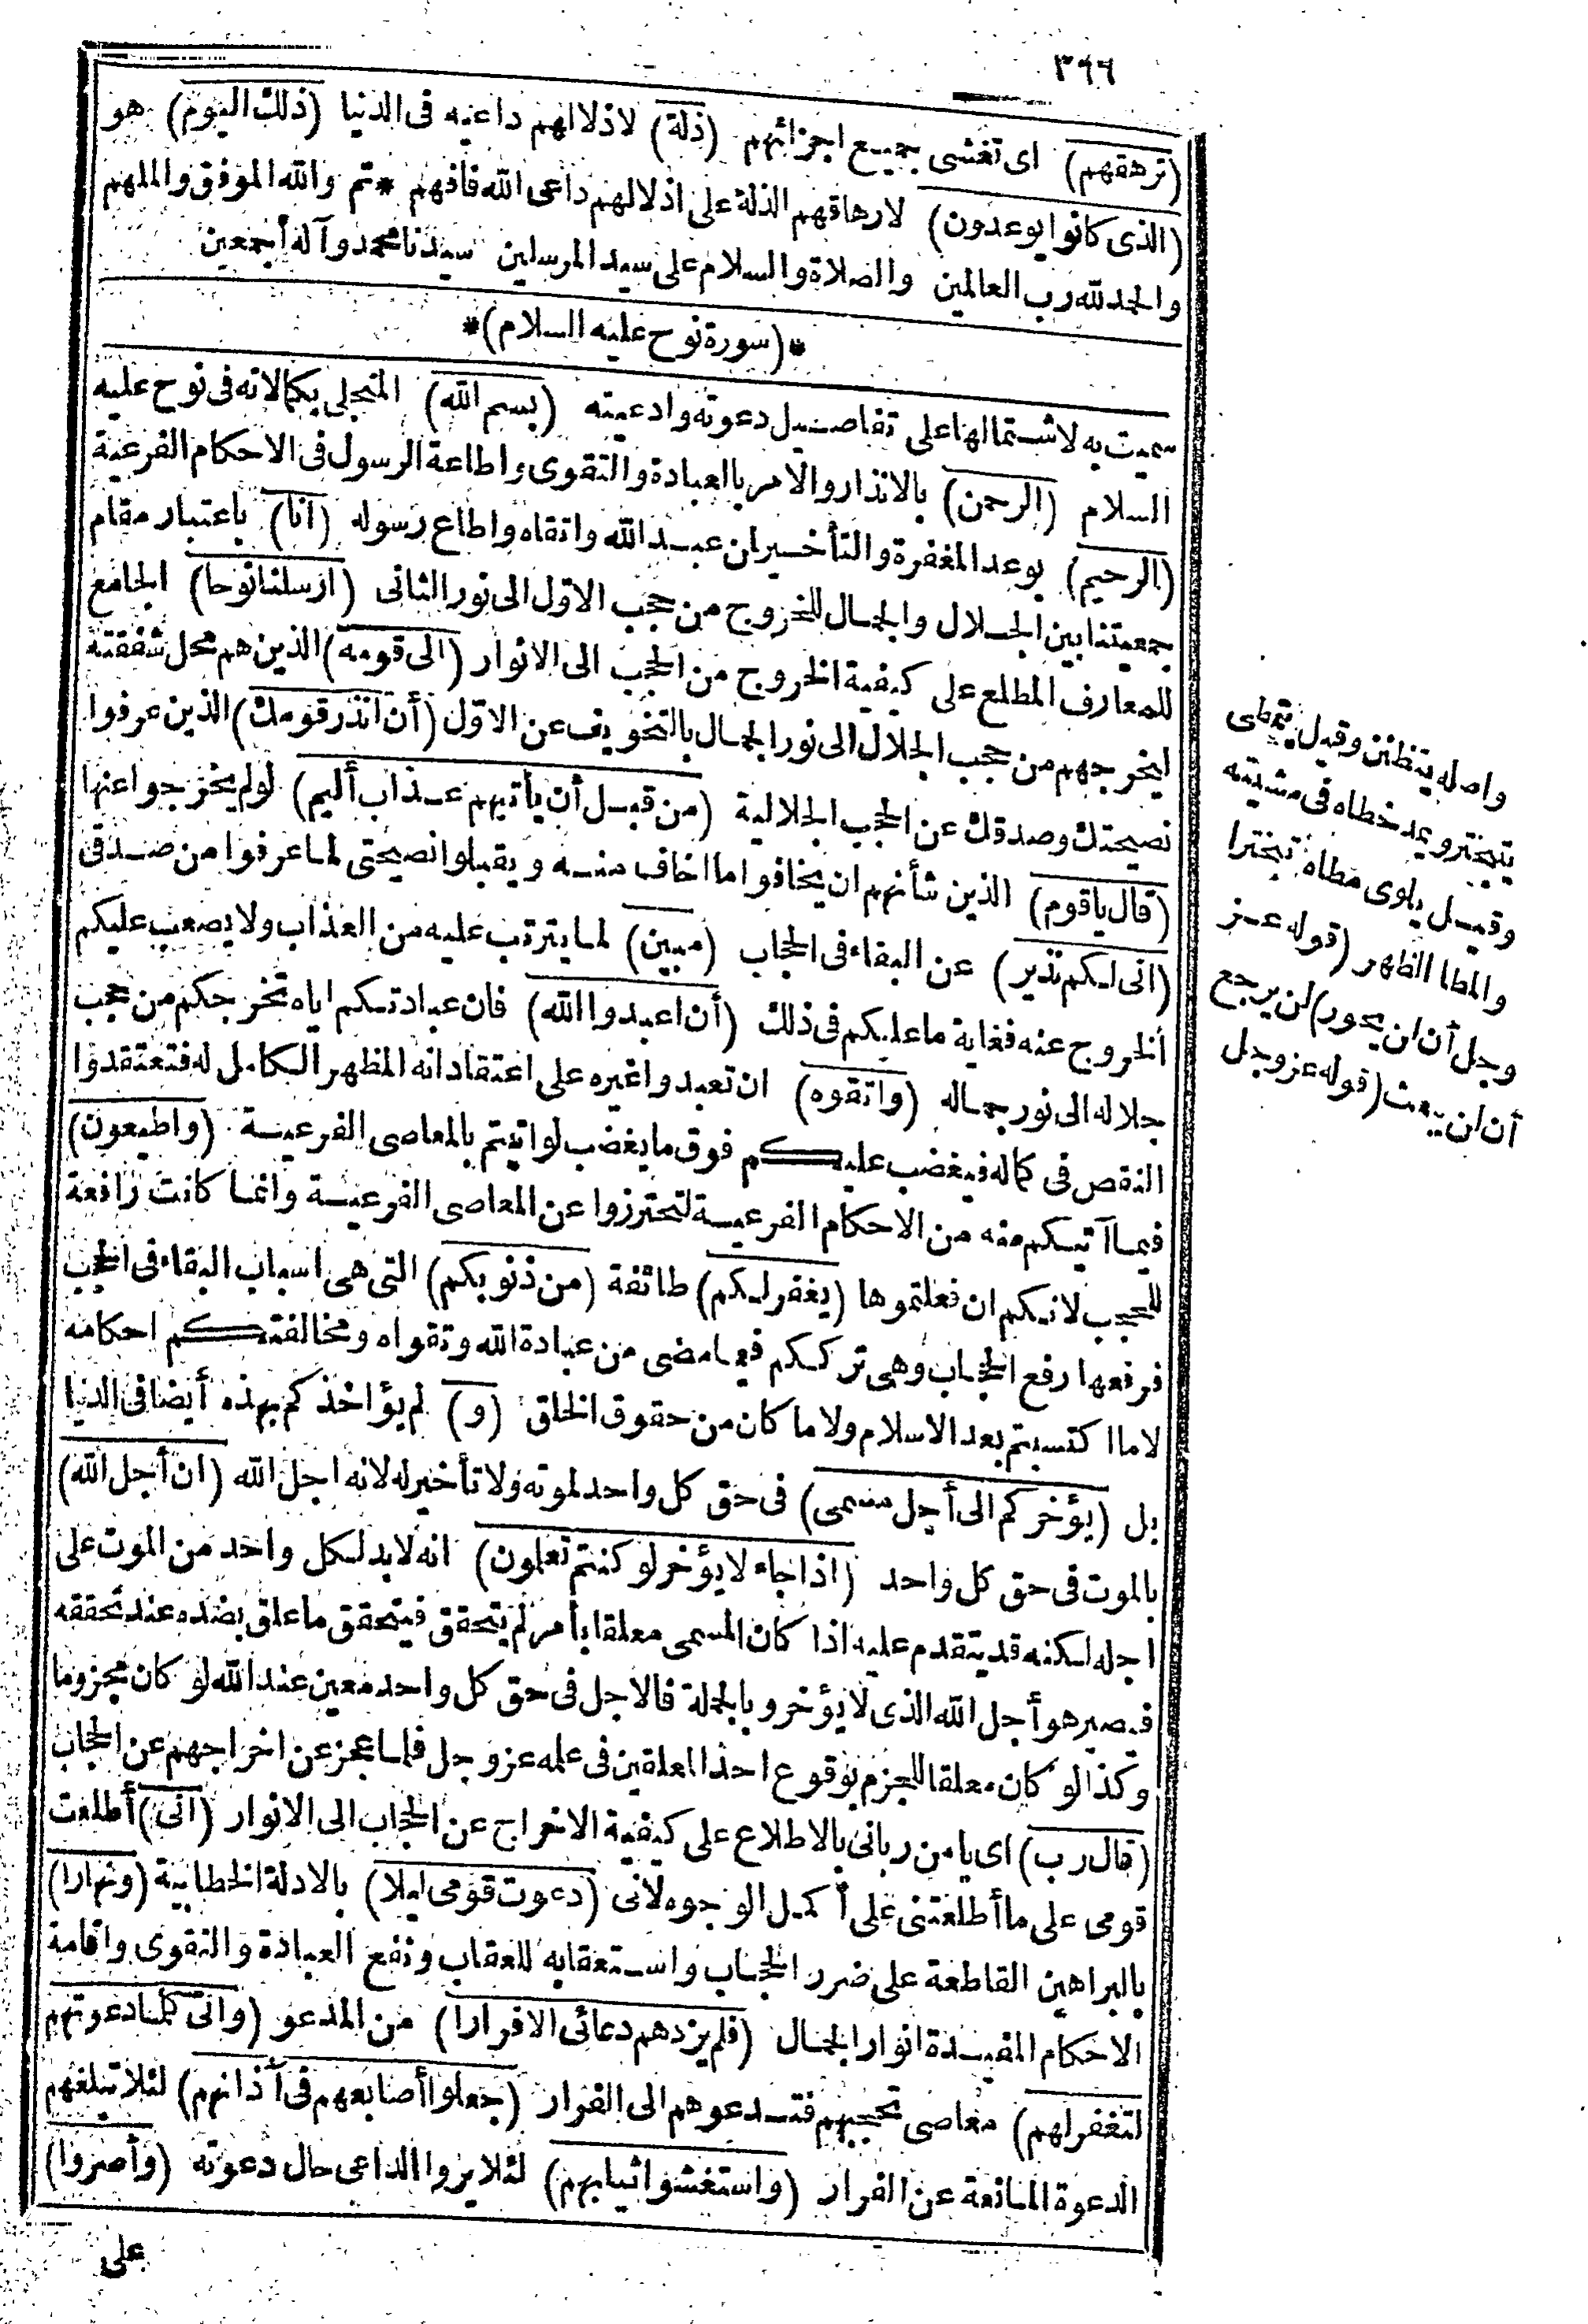 ٣٦٦
(ترهقهم) اى تغشى جميع اجزائهم (ذلة) لاذلالهم داعيه فى الدنيا (ذلك اليوم) هو
(الذى كانوا يوعدون) لارهاقهم الذلة على اذلالهم داعى الله فافهم * تم والله الموفق والملهم
والحمد لله رب العالمين والصلاة والسلام على سيد المرسلين سيدنا محمد وآله أجمعين
*(سورة نوح عليه السلام)*
سميت به لاشتمالها على تفاصيل دعوته وادعيته (بسم الله) المتجلى بكمالاته فى نوح عليه
السلام (الرحمن) بالانذار والامر بالعبادة والتقوى واطاعة الرسول فى الاحكام الفرعية
(الرحيم) بوعد المغفرة والتأخير ان عبد الله واتقاه واطاع رسوله (انا) باعتبار مقام
جمعيتنا بين الجلال والجمال للخروج من حجب الاول الى نور الثانى (ارسلنا نوحا) الجامع
للمعارف المطلع على كيفية الخروج من الحجب الى الانوار (الى قومه) الذين هم محل شفقته
ليخرجهم من حجب الجلال الى نور الجمال بالتخويف عن الاول (أن انذر قومك) الذين عرفوا
نصيحتك وصدقك عن الحجب الجلالية (من قبل أن يأتيهم عذاب أليم) لو لم يخرجوا عنها
(قال ياقوم) الذين شأنهم ان يخافوا ما اخاف منه ويقبلوا نصيحتى لما عرفوا من صدقى
(انى لكم نذير) عن البقاء فى الحجاب (مبين) لما يترتب عليه من العذاب ولا يصعب عليكم
الخروج عنه فغاية ما عليكم فى ذلك (أن اعبدوا الله) فان عبادتكم اياه تخرجكم من حجب
جلاله الى نور جماله (واتقوه) ان تعبدوا غيره على اعتقاد انه المظهر الكامل له فتعتقدوا
النقص فى كماله فيغضب عليكم فوق ما يغضب لو اتيتم بالمعاصى الفرعية (واطيعون)
فيما آتيكم منه من الاحكام الفرعية لتحترزوا عن المعاصى الفرعية وانما كانت رافعة
للحجب لانكم ان فعلتموها (يغفر لكم) طائفة (من ذنوبكم) التى هى اسباب البقاء فى الحجب
فرفعها رفع الحجاب وهى ترككم فيما مضى من عبادة الله وتقواه ومخالفتكم احكامه
لا ما اكتسبتم بعد الاسلام ولا ما كان من حقوق الخلق (و) لم يؤاخذكم بهذه أيضا فى الدنيا
بل (يؤخركم الى أجل مسمى) فى حق كل واحد لموته ولا تأخير له لانه اجل الله (ان أجل الله)
بالموت فى حق كل واحد (اذا جاء لا يؤخر لو كنتم تعلمون) انه لابد لكل واحد من الموت على
اجله لكنه قد يتقدم عليه اذا كان المسمى معلقا بأمر لم يتحقق فيتحقق ما علق بضده عند تحققه
فيصير هو أجل الله الذى لا يؤخر وبالجملة فالاجل فى حق كل واحد معين عند الله لو كان مجزوما
وكذا لو كان معلقا للجزم بوقوع احد المعلقين فى علمه عز وجل فلما عجز عن اخراجهم عن الحجاب
(قال رب) اى يا من ربانى بالاطلاع على كيفية الاخراج عن الحجاب الى الانوار (انى) أطلعت
قومى على ما أطلعتنى على أكمل الوجوه لانى (دعوت قومى ليلا) بالادلة الخطابية (ونهارا)
بالبراهين القاطعة على ضرر الحجاب واستعقابه للعقاب ونفع العبادة والتقوى واقامة
الاحكام المفيدة انوار الجمال (فلم يزدهم دعائى الا فرارا) من المدعو (وانى كلما دعوتهم
لتغفر لهم) معاصى تحجبهم فتدعوهم الى الفرار (جعلوا أصابعهم فى آذانهم) لئلا تبلغهم
الدعوة المانعة عن الفرار (واستغشوا ثيابهم) لئلا يروا الداعى حال دعوته (وأصروا)
على
واصله يتظنن وقيل يتمطى
يتبختر ويمد خطاه فى مشيته
وقيل يلوى مطاه تبخترا
والمطا الظهر (قوله عز
وجل أن لن يحور) لن يرجع
أن لن يبعث (قوله عز وجل